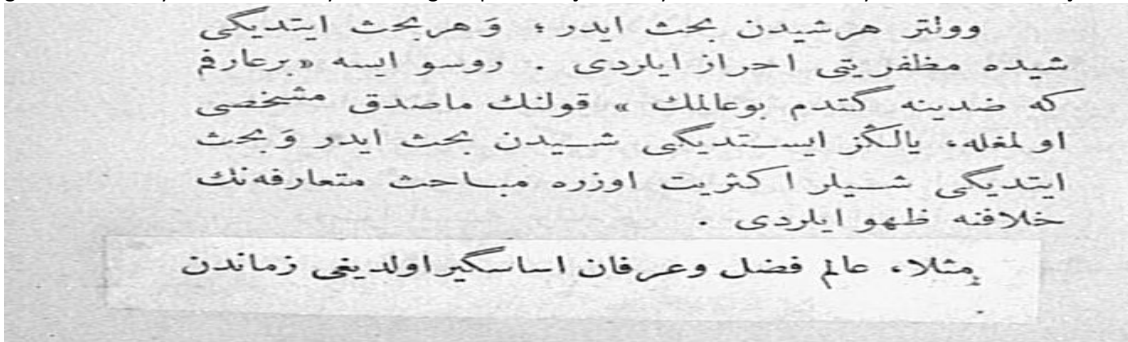 وولتر هرشیدن بحث ایدر ؛ وَ هربحث ایتدیکی
شیده مظفریتی احراز ایلردی . روسو ایسه «برعارفم
که ضدینه گتدم بوعالمك » قولنك ماصدق مشخصی
اولمغله، یالکز ایستدیکی شیدن بحث ایدر وَبحث
ایتدیکی شیلر اکثریت اوزره مباحث متعارفه‌نك
خلافنه ظهو ایلردی .
مثلا، عالم فضل وعرفان اساسگیراولدیغی زماندن